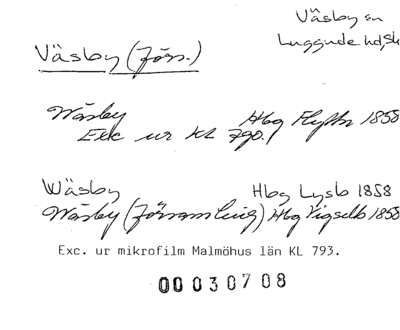 Väsby sn
Luggude hd, Sk
Väsby (förs.)
Wäsby Hbg Flyttn 1858
Exc ur KL 790.
Wäsby Hbg Lysb 1858
Wäsby (församling) Hbg Vigselb 1858
Exc. ur mikrofilm Malmöhus län KL 793.
00030708